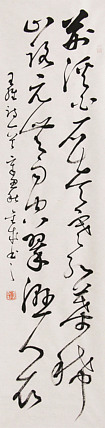 荆溪白石出天寒红叶稀
山路元无雨空翠湿人衣
王维诗一首辛丑秋